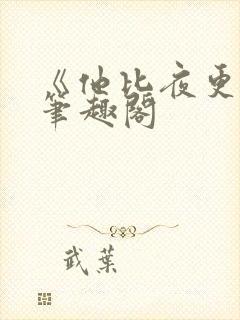 《他比夜更
筆趣閣
武葉